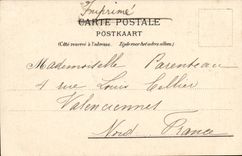 Imprimé
CARTE POSTALE
POSTKAART
(Côté réservé à l'adresse. Zijde voor het adres alleen.)
Mademoiselle Parenteau
4 rue Louis Cellier
Valenciennes
Nord. France